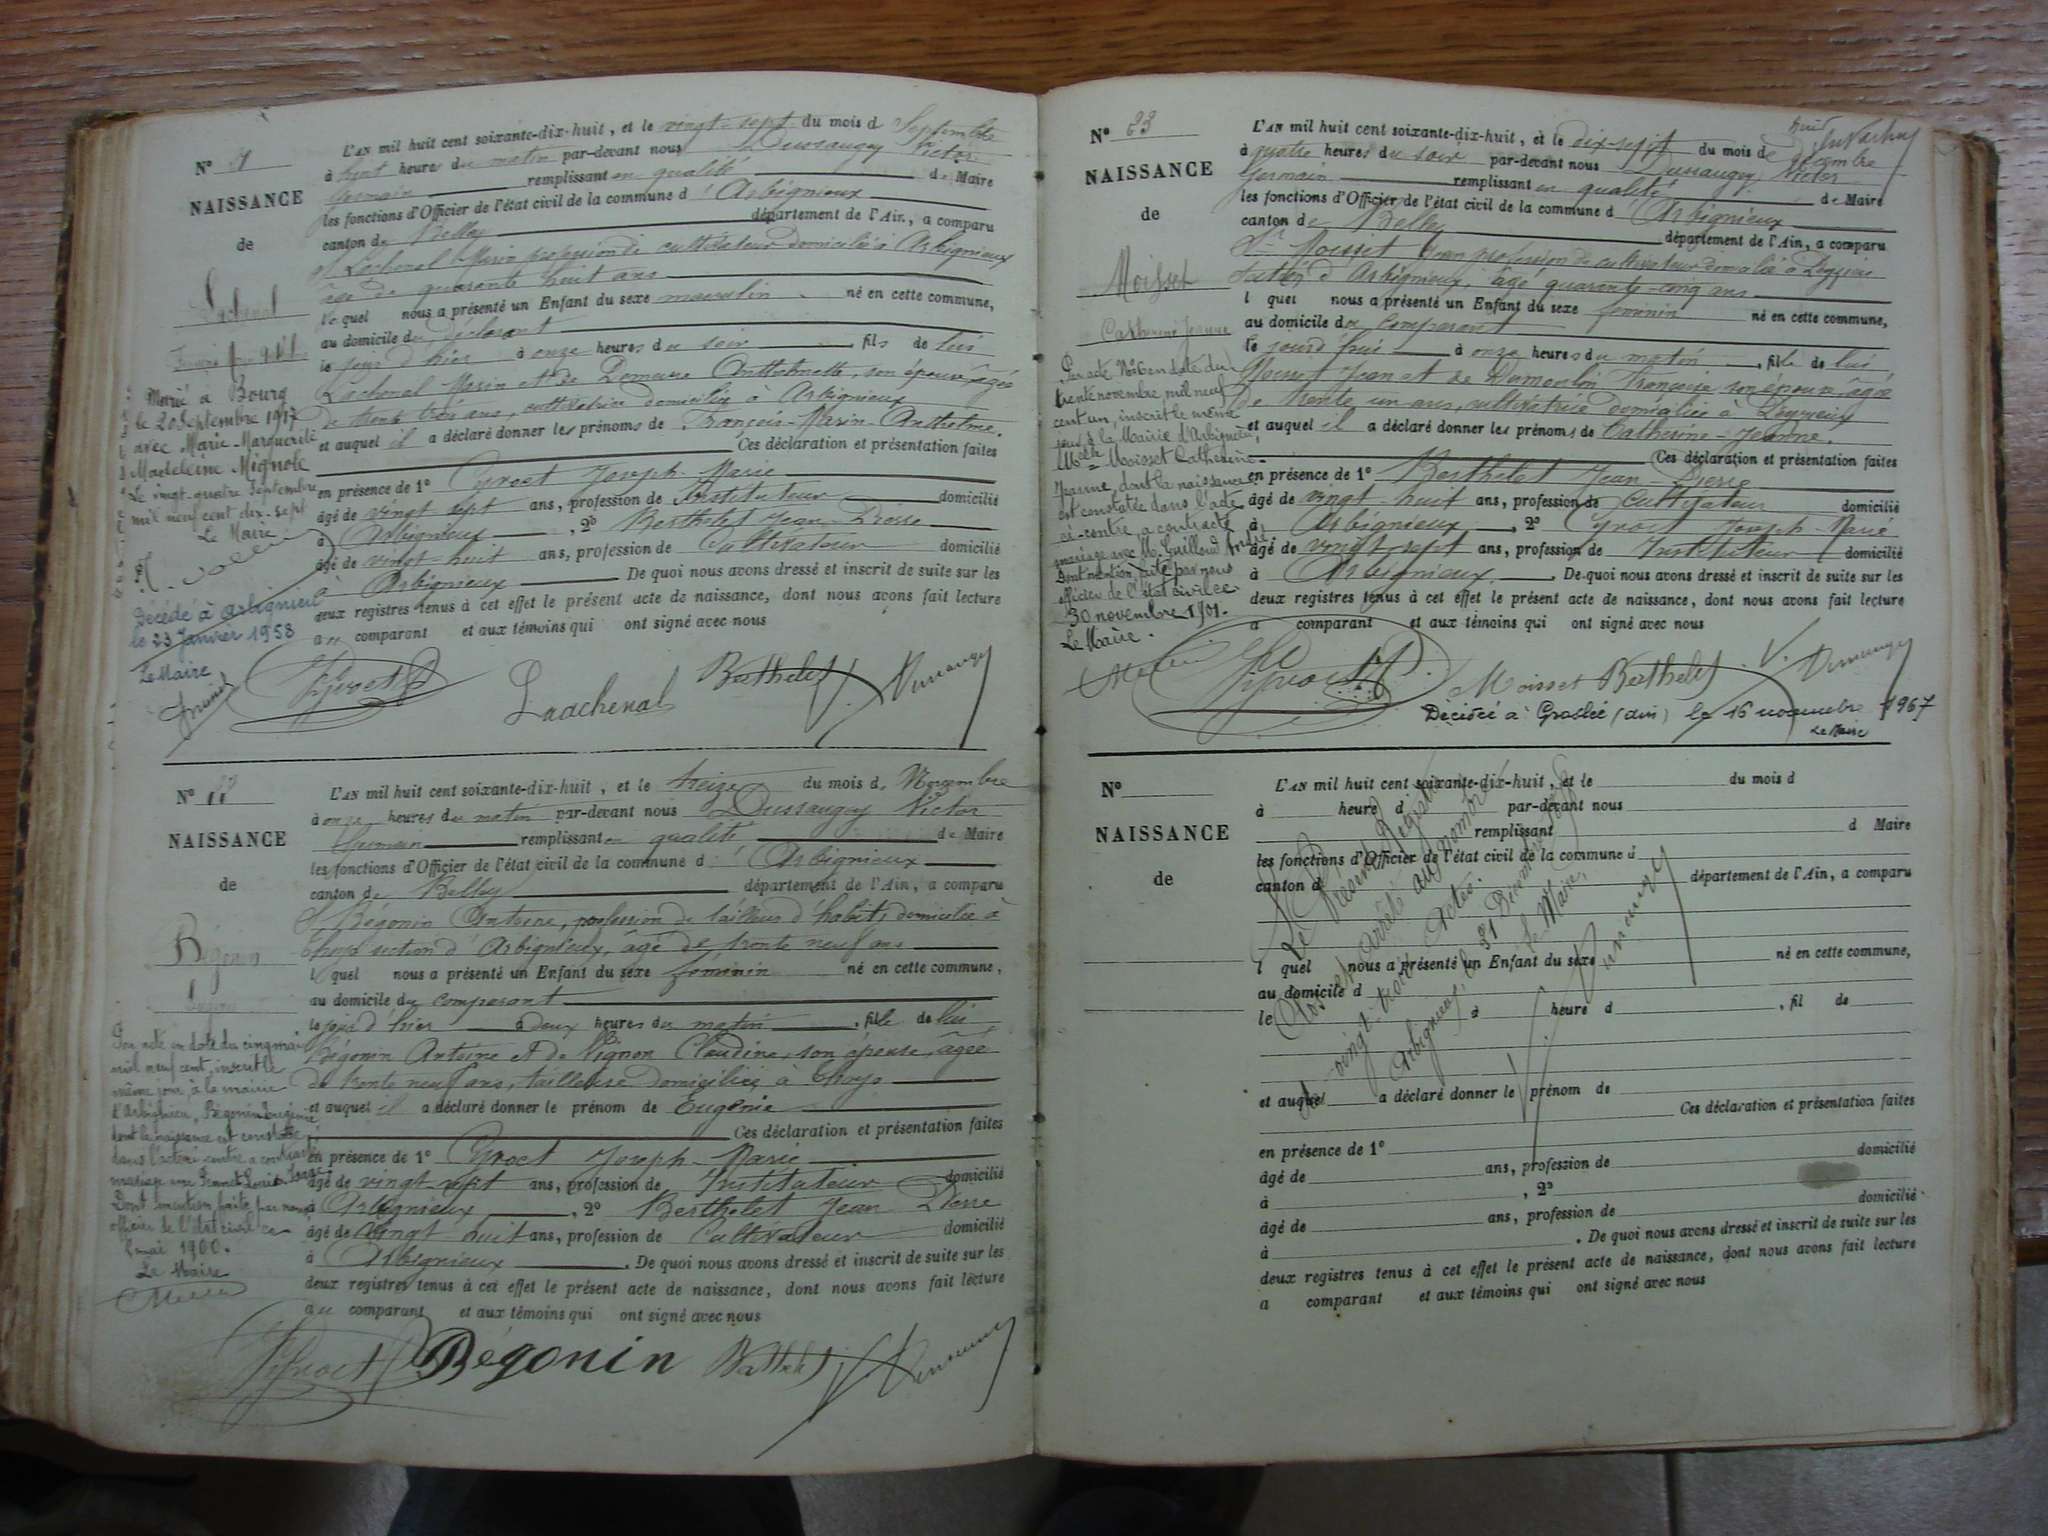 N° 21
NAISSANCE
de
Lachenal
Marié à Bourg
le 20 Septembre 1917
avec Marie-Marguerite
Madeleine Mignole
Le vingt-quatre Septembre
mil neuf cent dix-sept
Le Maire
Décédé à Arbignieu
le 23 Janvier 1958
Le Maire
L'AN mil huit cent soixante-dix-huit, et le vingt-sept du mois d Septembre
à huit heures du matin par-devant nous Dussaugey Victor
Germain remplissant en qualité de Maire
les fonctions d'Officier de l'état civil de la commune d'Arbignieux
canton de Belley département de l'Ain, a comparu
Lachenal Marin profession de cultivateur domicilié à Arbignieux
âgé de quarante huit ans
lequel nous a présenté un Enfant du sexe masculin né en cette commune,
au domicile du déclarant
le jour d'hier à onze heures du soir, fils de lui
Lachenal Marin et de Demeure Anthelmette, son épouse âgée
de trente trois ans, cultivatrice domiciliée à Arbignieux
et auquel il a déclaré donner les prénoms de François-Marin-Anthelme.
Ces déclaration et présentation faites
en présence de 1° Gyroct Joseph-Marie
âgé de vingt sept ans, profession de Instituteur domicilié
à Arbignieux, 2° Berthelet Jean-Pierre
âgé de vingt huit ans, profession de Cultivateur domicilié
à Arbignieux De quoi nous avons dressé et inscrit de suite sur les
deux registres tenus à cet effet le présent acte de naissance, dont nous avons fait lecture
au comparant et aux témoins qui ont signé avec nous
Lachenal Berthelet V. Dussaugey
N° 22
NAISSANCE
de
Bégonin
Eugénie
Par acte en date du cinq mai
mil neuf cent, inscrit le
même jour à la mairie
d'Arbignieu, Bégonin Eugénie
dont la naissance est constatée
dans l'acte ci-contre a contracté
mariage avec
Dont mention faite par nous
officier de l'état civil ce
mai 1900.
Le Maire
L'AN mil huit cent soixante-dix-huit, et le treize du mois de Novembre
à onze heures du matin par-devant nous Dussaugey Victor
Germain remplissant en qualité de Maire
les fonctions d'Officier de l'état civil de la commune d'Arbignieux
canton de Belley département de l'Ain, a comparu
S. Bégonin Antoine, profession de tailleur d'habits domicilié à
Thoys section d'Arbignieux, âgé de trente neuf ans
lequel nous a présenté un Enfant du sexe féminin né en cette commune,
au domicile du comparant
le jour d'hier à deux heures du matin, fille de lui
Bégonin Antoine et de Vignon Claudine, son épouse, âgée
de trente neuf ans, tailleuse domiciliée à Thoys
et auquel il a déclaré donner le prénom de Eugénie
Ces déclaration et présentation faites
en présence de 1° Gyroct Joseph-Marie
âgé de vingt-sept ans, profession de Instituteur domicilié
à Arbignieux, 2° Berthelet Jean Pierre
âgé de vingt huit ans, profession de Cultivateur domicilié
à Arbignieux. De quoi nous avons dressé et inscrit de suite sur les
deux registres tenus à cet effet le présent acte de naissance, dont nous avons fait lecture
au comparant et aux témoins qui ont signé avec nous
Bégonin Berthelet V. Dussaugey
N° 23
NAISSANCE
de
Moisset
Catherine Jeanne
Par acte N° 6 en date du
trente novembre mil neuf
cent un, inscrit le même
jour à la Mairie d'Arbignieu,
Melle Moisset Catherine-
Jeanne, dont la naissance
est constatée dans l'acte
ci-contre a contracté
mariage avec M. Guilloud
Dont mention faite par nous
officier de l'état civil ce
30 novembre 1901.
Le Maire.
L'AN mil huit cent soixante-dix-huit, et le dix-sept du mois de Décembre
à quatre heures du soir par-devant nous Dussaugey Victor
Germain remplissant en qualité de Maire
les fonctions d'Officier de l'état civil de la commune d'Arbignieux
canton de Belley département de l'Ain, a comparu
Sr Moisset Jean profession de cultivateur domicilié à
section d'Arbignieux, âgé quarante-cinq ans
lequel nous a présenté un Enfant du sexe féminin né en cette commune,
au domicile du comparant
le jourd'hui à onze heures du matin, fille de lui
Moisset Jean et de Dumoulin Françoise son épouse, âgée
de trente un ans, cultivatrice domiciliée à
et auquel il a déclaré donner les prénoms de Catherine-Jeanne.
Ces déclaration et présentation faites
en présence de 1° Berthelet Jean-Pierre
âgé de vingt-huit ans, profession de Cultivateur domicilié
à Arbignieux, 2° Gyroct Joseph-Marie
âgé de vingt-sept ans, profession de Instituteur domicilié
à Arbignieux. De quoi nous avons dressé et inscrit de suite sur les
deux registres tenus à cet effet le présent acte de naissance, dont nous avons fait lecture
a comparant et aux témoins qui ont signé avec nous
Moisset Berthelet V. Dussaugey
Décédée à Groslée (ain) le 16 novembre 1967
Le Maire
N°
NAISSANCE
de
L'AN mil huit cent soixante-dix-huit, et le du mois d
à heure d par-devant nous
remplissant d Maire
les fonctions d'Officier de l'état civil de la commune d
canton d département de l'Ain, a comparu
l quel nous a présenté un Enfant du sexe né en cette commune,
au domicile d
le à heure d, fil de
et auquel a déclaré donner le prénom de
Ces déclaration et présentation faites
en présence de 1°
âgé de ans, profession de domicilié
à, 2°
âgé de ans, profession de domicilié
à. De quoi nous avons dressé et inscrit de suite sur les
deux registres tenus à cet effet le présent acte de naissance, dont nous avons fait lecture
a comparant et aux témoins qui ont signé avec nous
Le Présent Registre
Clos et Arrêté au nombre
de vingt-trois Actes.
Arbignieux, le 31 Décembre
Le Maire,
V. Dussaugey